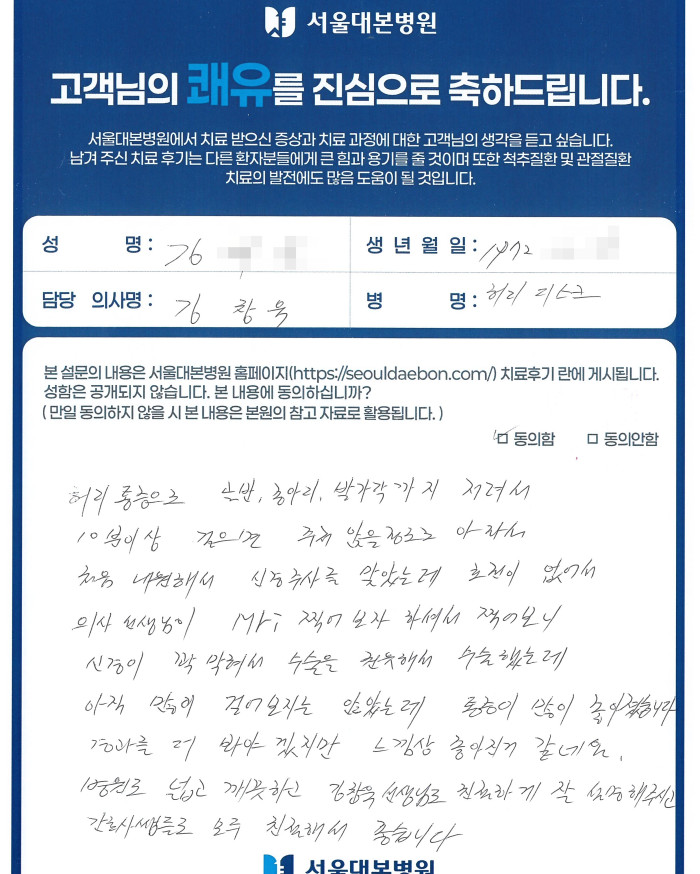 서울대본병원
고객님의 쾌유를 진심으로 축하드립니다.
서울대본병원에서 치료 받으신 증상과 치료 과정에 대한 고객님의 생각을 듣고 싶습니다.
남겨 주신 치료 후기는 다른 환자분들에게 큰 힘과 용기를 줄 것이며 또한 척추질환 및 관절질환
치료의 발전에도 많음 도움이 될 것입니다.
성 명 : 김 생 년 월 일 : 1972
담당 의사명 : 김 창 욱 병 명 : 허리 디스크
본 설문의 내용은 서울대본병원 홈페이지(https://seouldaebon.com/) 치료후기 란에 게시됩니다.
성함은 공개되지 않습니다. 본 내용에 동의하십니까?
( 만일 동의하지 않을 시 본 내용은 본원의 참고 자료로 활용됩니다. )
동의함 동의안함
허리 통증으로 골반, 종아리, 발가락 까지 저려서
10분이상 걸으면 주저 앉을정도로 아파서
처음 내원해서 신경주사를 맞았는데 호전이 없어서
의사 선생님이 MRI 찍어 보자 하셔서 찍어보니
신경이 꽉 막혀서 수술을 권유해서 수술했는데
아직 많이 걸어보지는 않았는데 통증이 많이 좋아졌습니다
경과를 더 봐야 겠지만 느낌상 좋아진거 같네요.
병원도 넓고 깨끗하고 김창욱 선생님도 친절하게 잘 설명해주시고
간호사쌤들도 모두 친절해서 좋습니다
서울대본병원